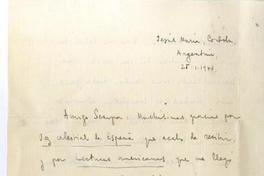 Jesús María, Córdoba,
Argentina,
25.1.194
Amigo Scarpa: Muchísimas gracias por
Voz celestial de España que acabo de recibir,
y por Lecturas americanas, que me llegó